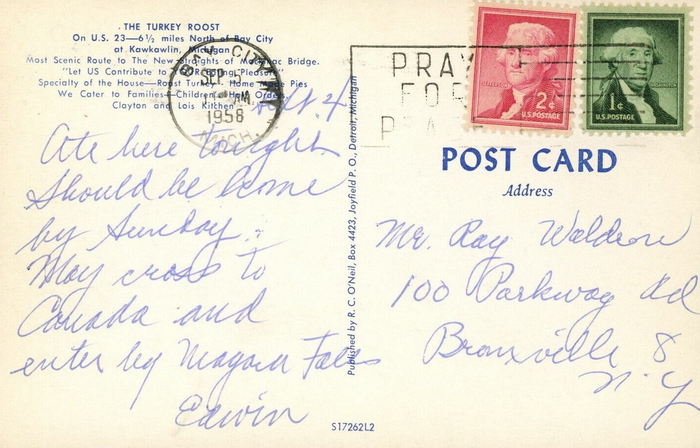 THE TURKEY ROOST
On U.S. 23—6½ miles North of Bay City
at Kawkawlin, Michigan
Most Scenic Route to The New Straights of Mackinac Bridge.
"Let US Contribute to Your
Pleasure
Specialty of the House—Roast Turkey Home Pies
We Cater to Families—Children's Half Orders
Clayton and Lois Kitchen
BAY CITY
SEP 5
AM
1958
MICH.
PRAY
FOR
JEFFERSON
2¢
U.S. POSTAGE
WASHINGTON
1¢
U.S. POSTAGE
Sept. 4
Ate here tonight.
Should be home
by Sunday.
May cross to
Canada and
enter by Niagara Falls
Edwin
Published by R. C. O'Neil, Box 4423, Joyfield P. O., Detroit, Michigan
POST CARD
Address
Mr. Ray Waldron
100 Parkway Rd
Bronxville 8
N.Y
S17262L2